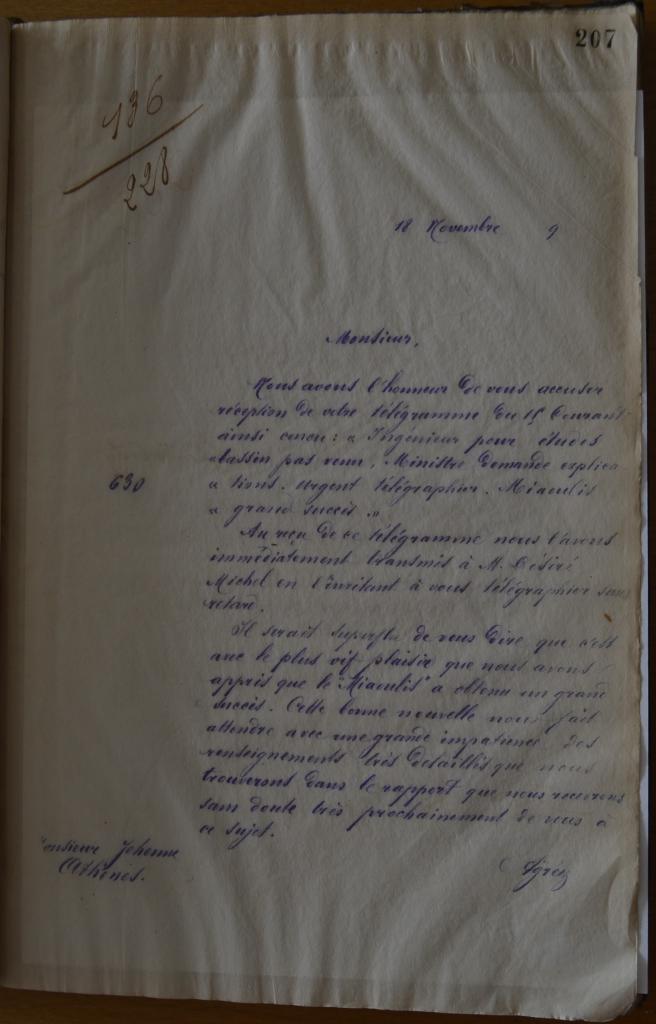 207
136
228
18 Novembre 9
Monsieur,
Nous avons l'honneur de vous accuser
réception de votre télégramme du 15 Courant
ainsi concu : " Ingénieur pour études
" bassin pas venu, Ministre demande explica
630
" tions. urgent télégraphier. Miaoulis
" grand succès ".
Au reçu de ce télégramme nous l'avons
immédiatement transmis à M. Désiré
Michel en l'invitant à vous télégraphier sans
retard.
Il serait superflu de vous dire que c'est
avec le plus vif plaisir que nous avons
appris que le "Miaoulis" a obtenu un grand
succès. Cette bonne nouvelle nous fait
attendre avec une grande impatience des
renseignements très détaillés que nous
trouverons dans le rapport que nous recevrons
sans doute très prochainement de vous à
ce sujet.
onsieur
Athènes.
Agréez